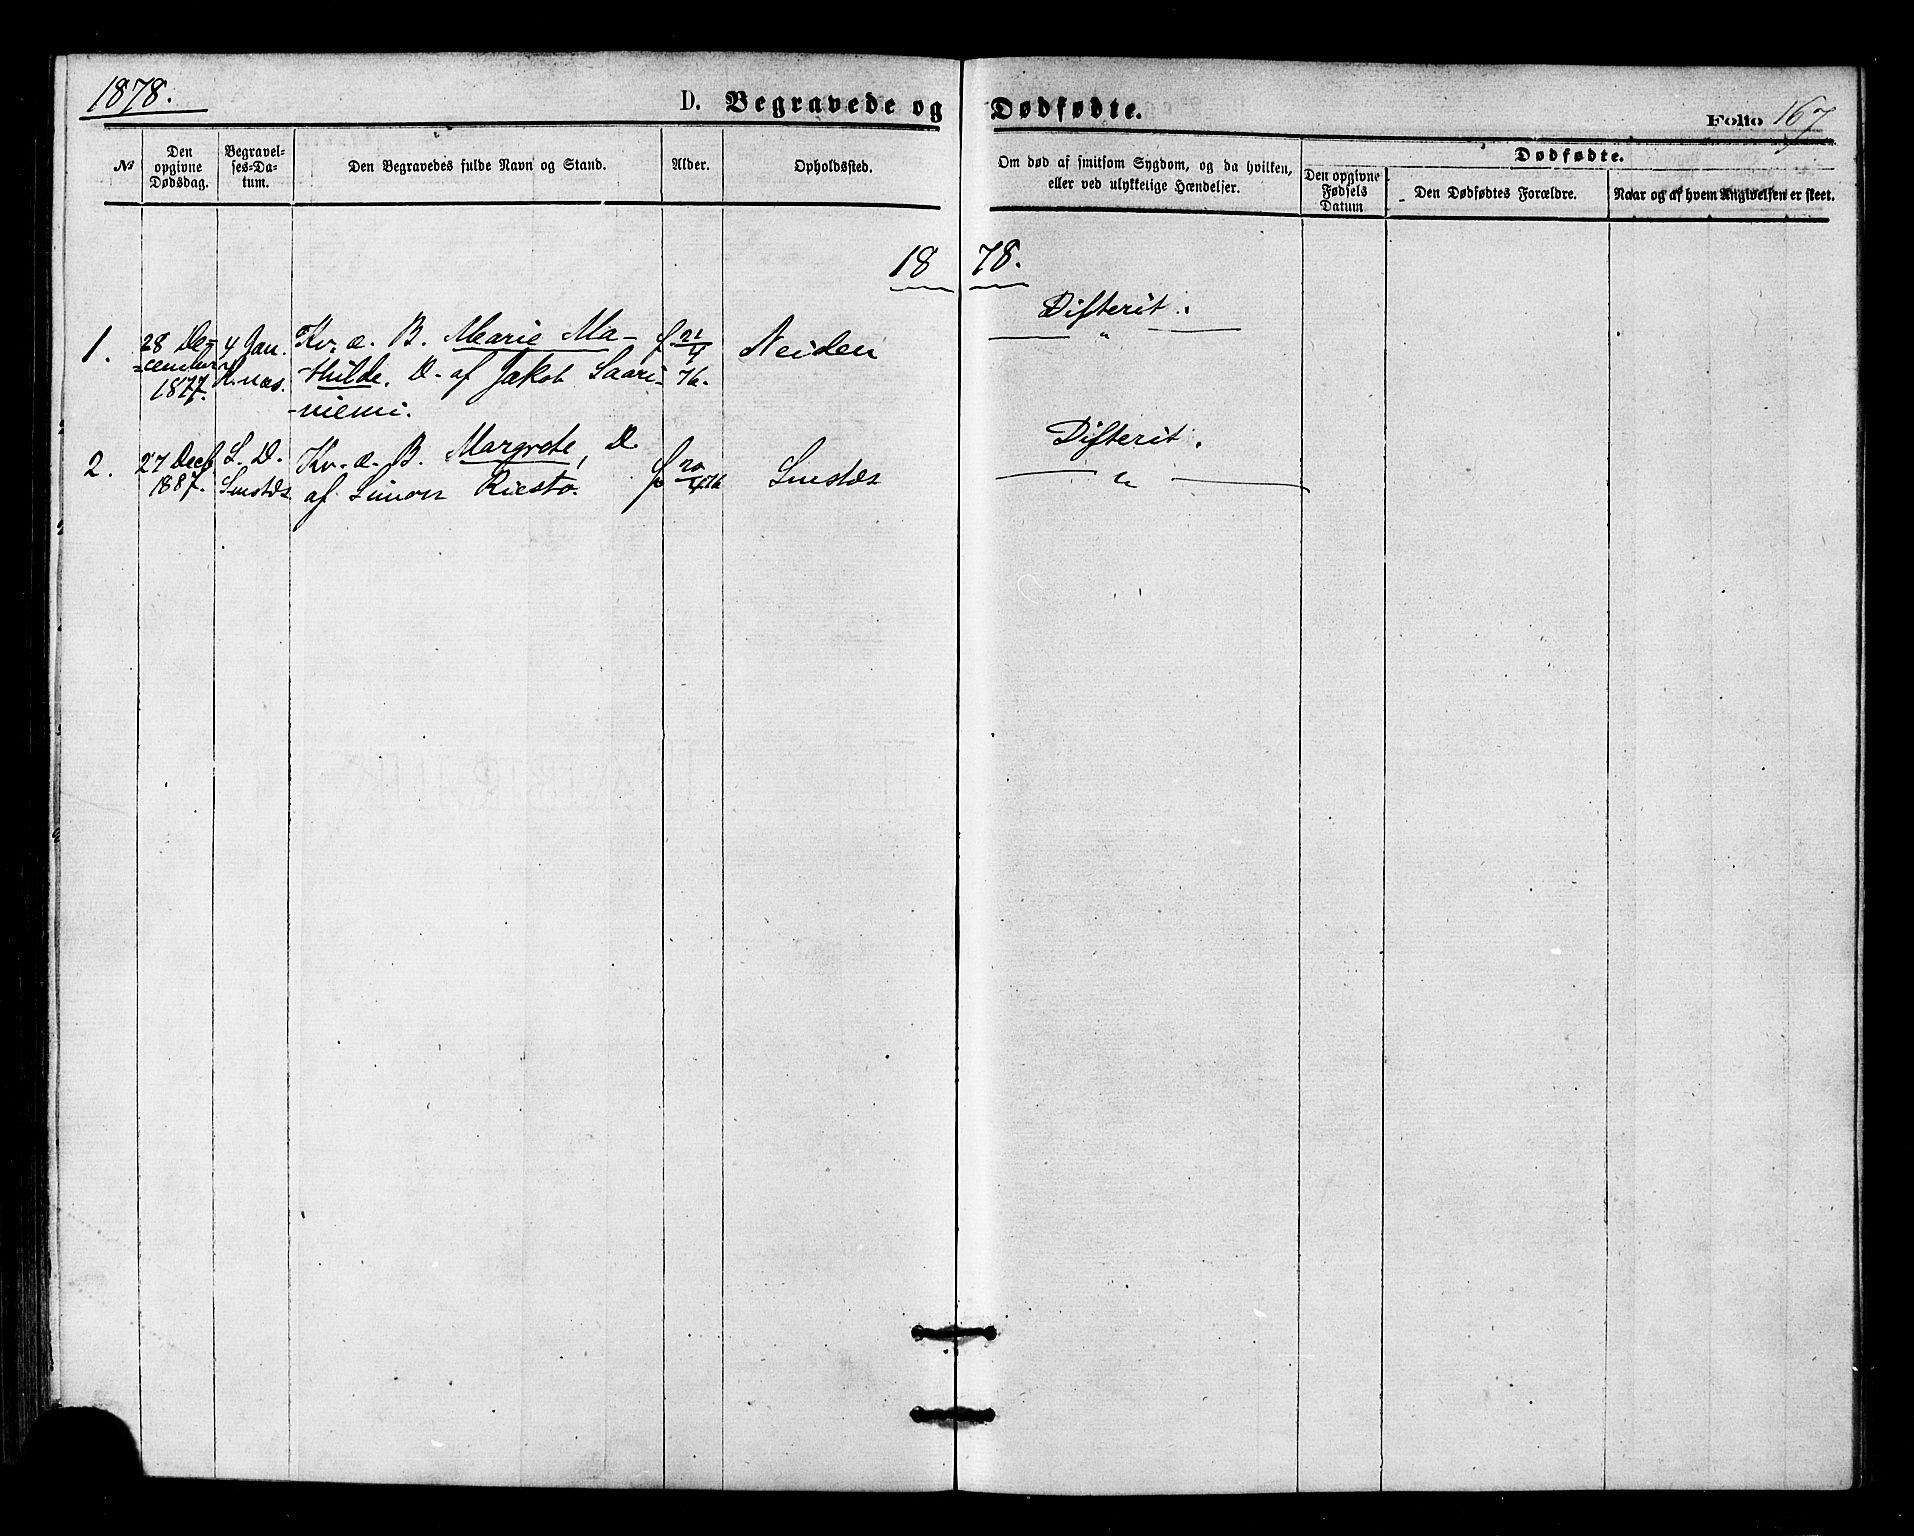 1878.
D. Begravede og Dødfødte.
Folio 167
№
Den opgivne Dødsdag.
Begravel-
ses-Da-
tum.
Den Begravedes fulde Navn og Stand.
Alder.
Opholdssted.
Om død af smitsom Sygdom, og da hvilken,
eller ved ulykkelige Hændelser.
Dødfødte.
Den opgivne
Fødsels
Datum
Den Dødfødtes Forældre.
Naar og af hvem Angivelsen er skeet.
1878.
1.
28 De-
=cember
1877.
4 Jan.
K.næs.
Kv. æ. B. Marie Ma-
-thilde, D. af Jakob Saari-
-niemi.
f. 21/4
76.
Neiden
Difterit.
"
2.
27 Decb.
1887.
S. D.
Kv. æ. B. Margrete, D.
af Simon Riesto.
f. 20/4 76
Difterit.
"